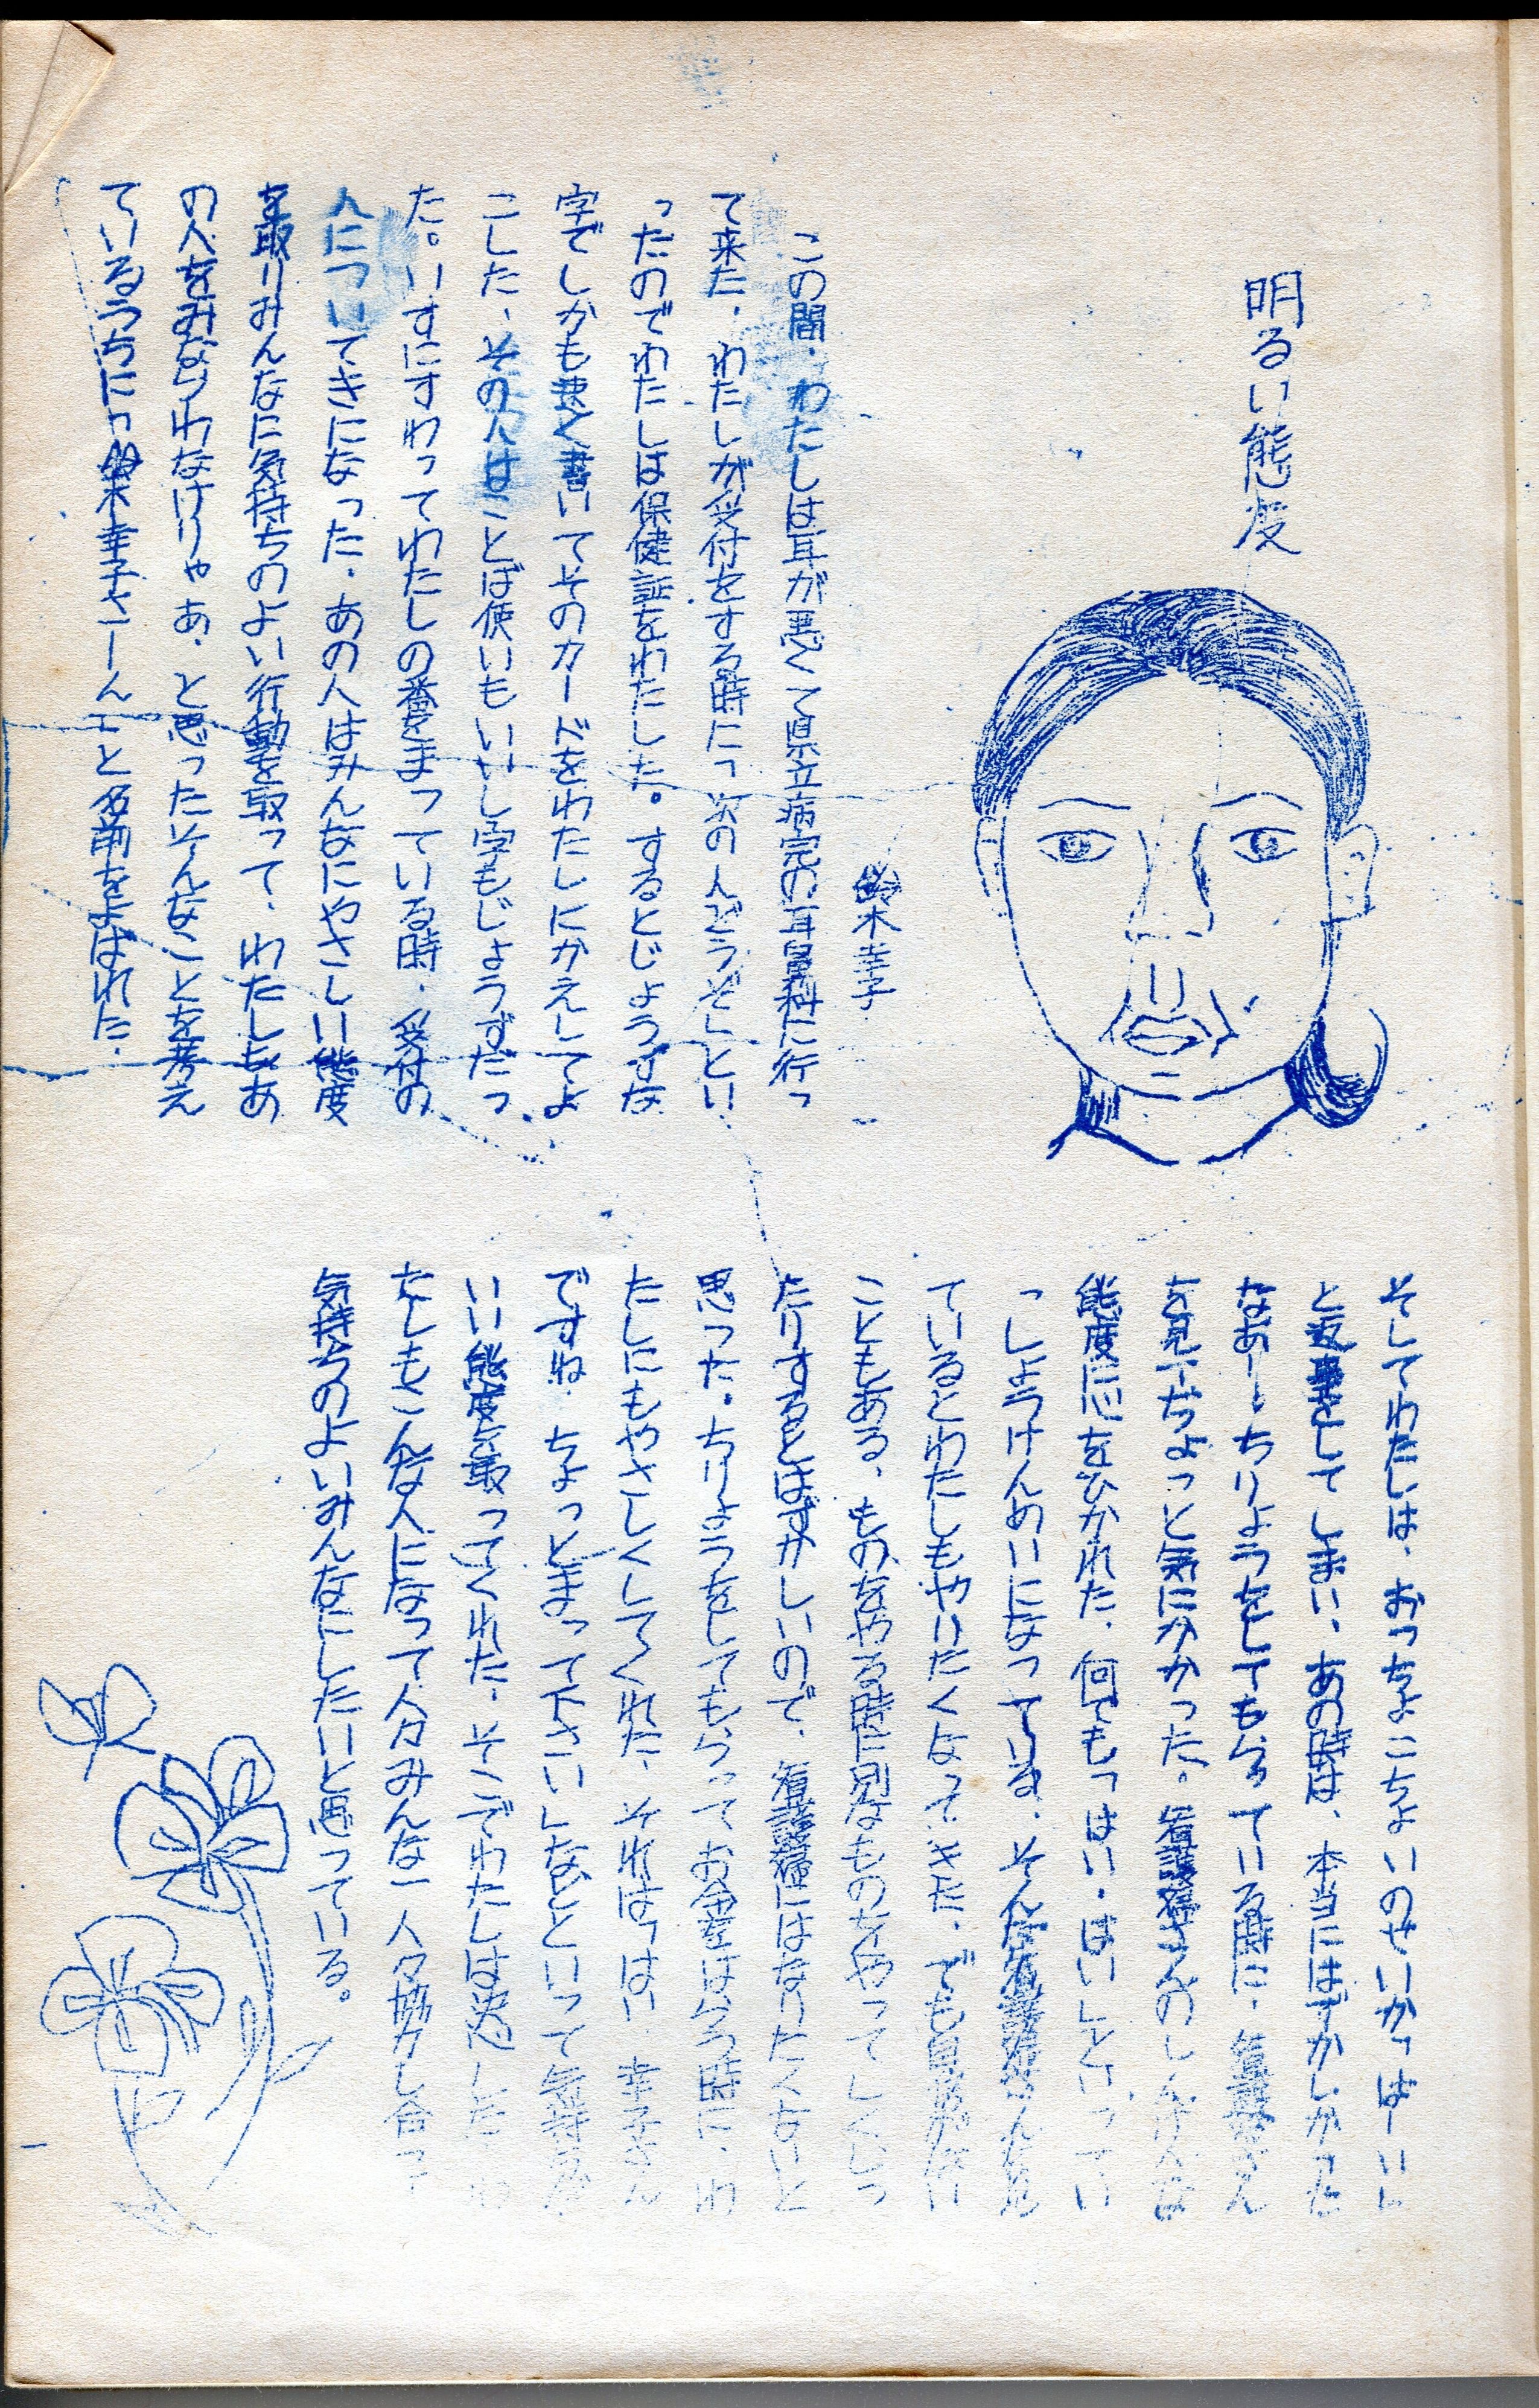 明るい態度
鈴木幸子
この間、わたしは耳が悪くて県立病院の耳鼻科に行っ
て来た。わたしが受付をする時に「次の人どうぞ」とい
ったのでわたしは保健証をわたした。するとじょうずな
字でしかも速く書いてそのカードをわたしにかえしてよ
こした、その人はことば使いもいいし字もじょうずだっ
た。いすにすわってわたしの番をまっている時、受付の
人についてきになった。あの人はみんなにやさしい態度
を取りみんなに気持ちのよい行動を取って、わたしもあ
の人をみならわなけりゃあ、と思ったそんなことを考え
ているうちに「鈴木幸子さーん」と名前をよばれた。
そしてわたしは、おっちょこちょいのせいか「はーい」
と返事をしてしまい、あの時は、本当にはずかしかった
なあー、ちりょうをしてもらっている時に、看護婦さん
を見てちょっと気にかかった。看護婦さんのしんけんな
態度に心をひかれた、何でも「はい、はい」といってい
っしょうけんめいになっている、そんな看護婦さんを見
ているとわたしもやりたくなってきた、でも自分が
こともある、ものをやる時に別なものをやってしくじっ
たりするとはずかしいので、看護婦にはなりたくないと
思った。ちりょうをしてもらってお金をはらう時に、わ
たしにもやさしくしてくれた、それは「はい、幸子さん
ですね、ちょっとまって下さい」などといって気持
いい態度を取ってくれた、そこでわたしは した、わ
たしもこんな人になって人々みんな一人々協力し合って
気持ちのよいみんなにしたいと思っている。